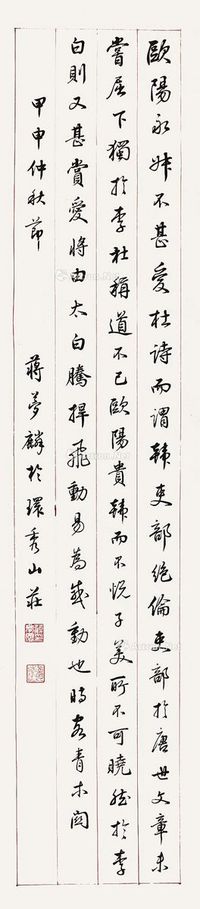 歐陽永叔不甚愛杜詩而謂韩吏部絶倫吏部於唐世文章未
嘗屈下獨於李杜稱道不已歐陽貴韩而不悦子美所不可曉然於李
白則又甚賞愛將由太白騰捍飛動易為感動也時客青木関
甲申仲秋節
蔣夢麟於環秀山莊